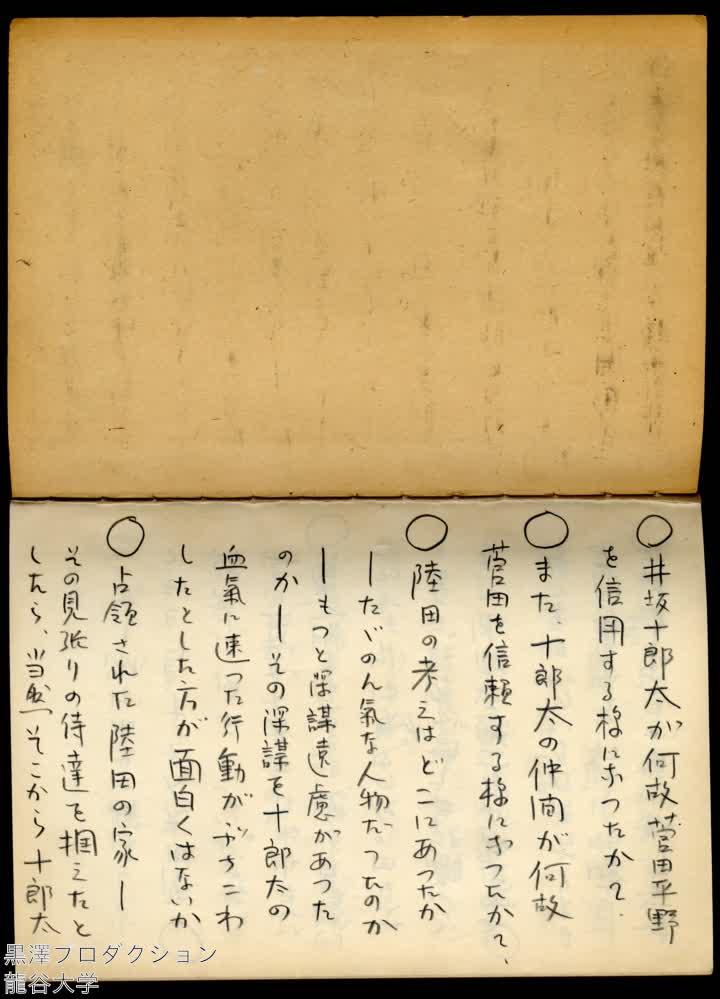 ○井坂十郎太が何故菅田平野
を信用する様になつたか？
○また、十郎太の仲間が何故
菅田を信頼する様になつたか？、
○陸田の考えはどこにあつたか
ーたゞのん氣な人物だつたのか
ーもつと深謀遠慮があつた
のかーその深謀を十郎太の
血氣に速つた行動がぶちこわ
したとした方が面白くはないか
○占領された陸田の家ー
その見張りの侍達を掴えたと
したら、当然そこから十郎太
黒澤プロダクション
龍谷大学